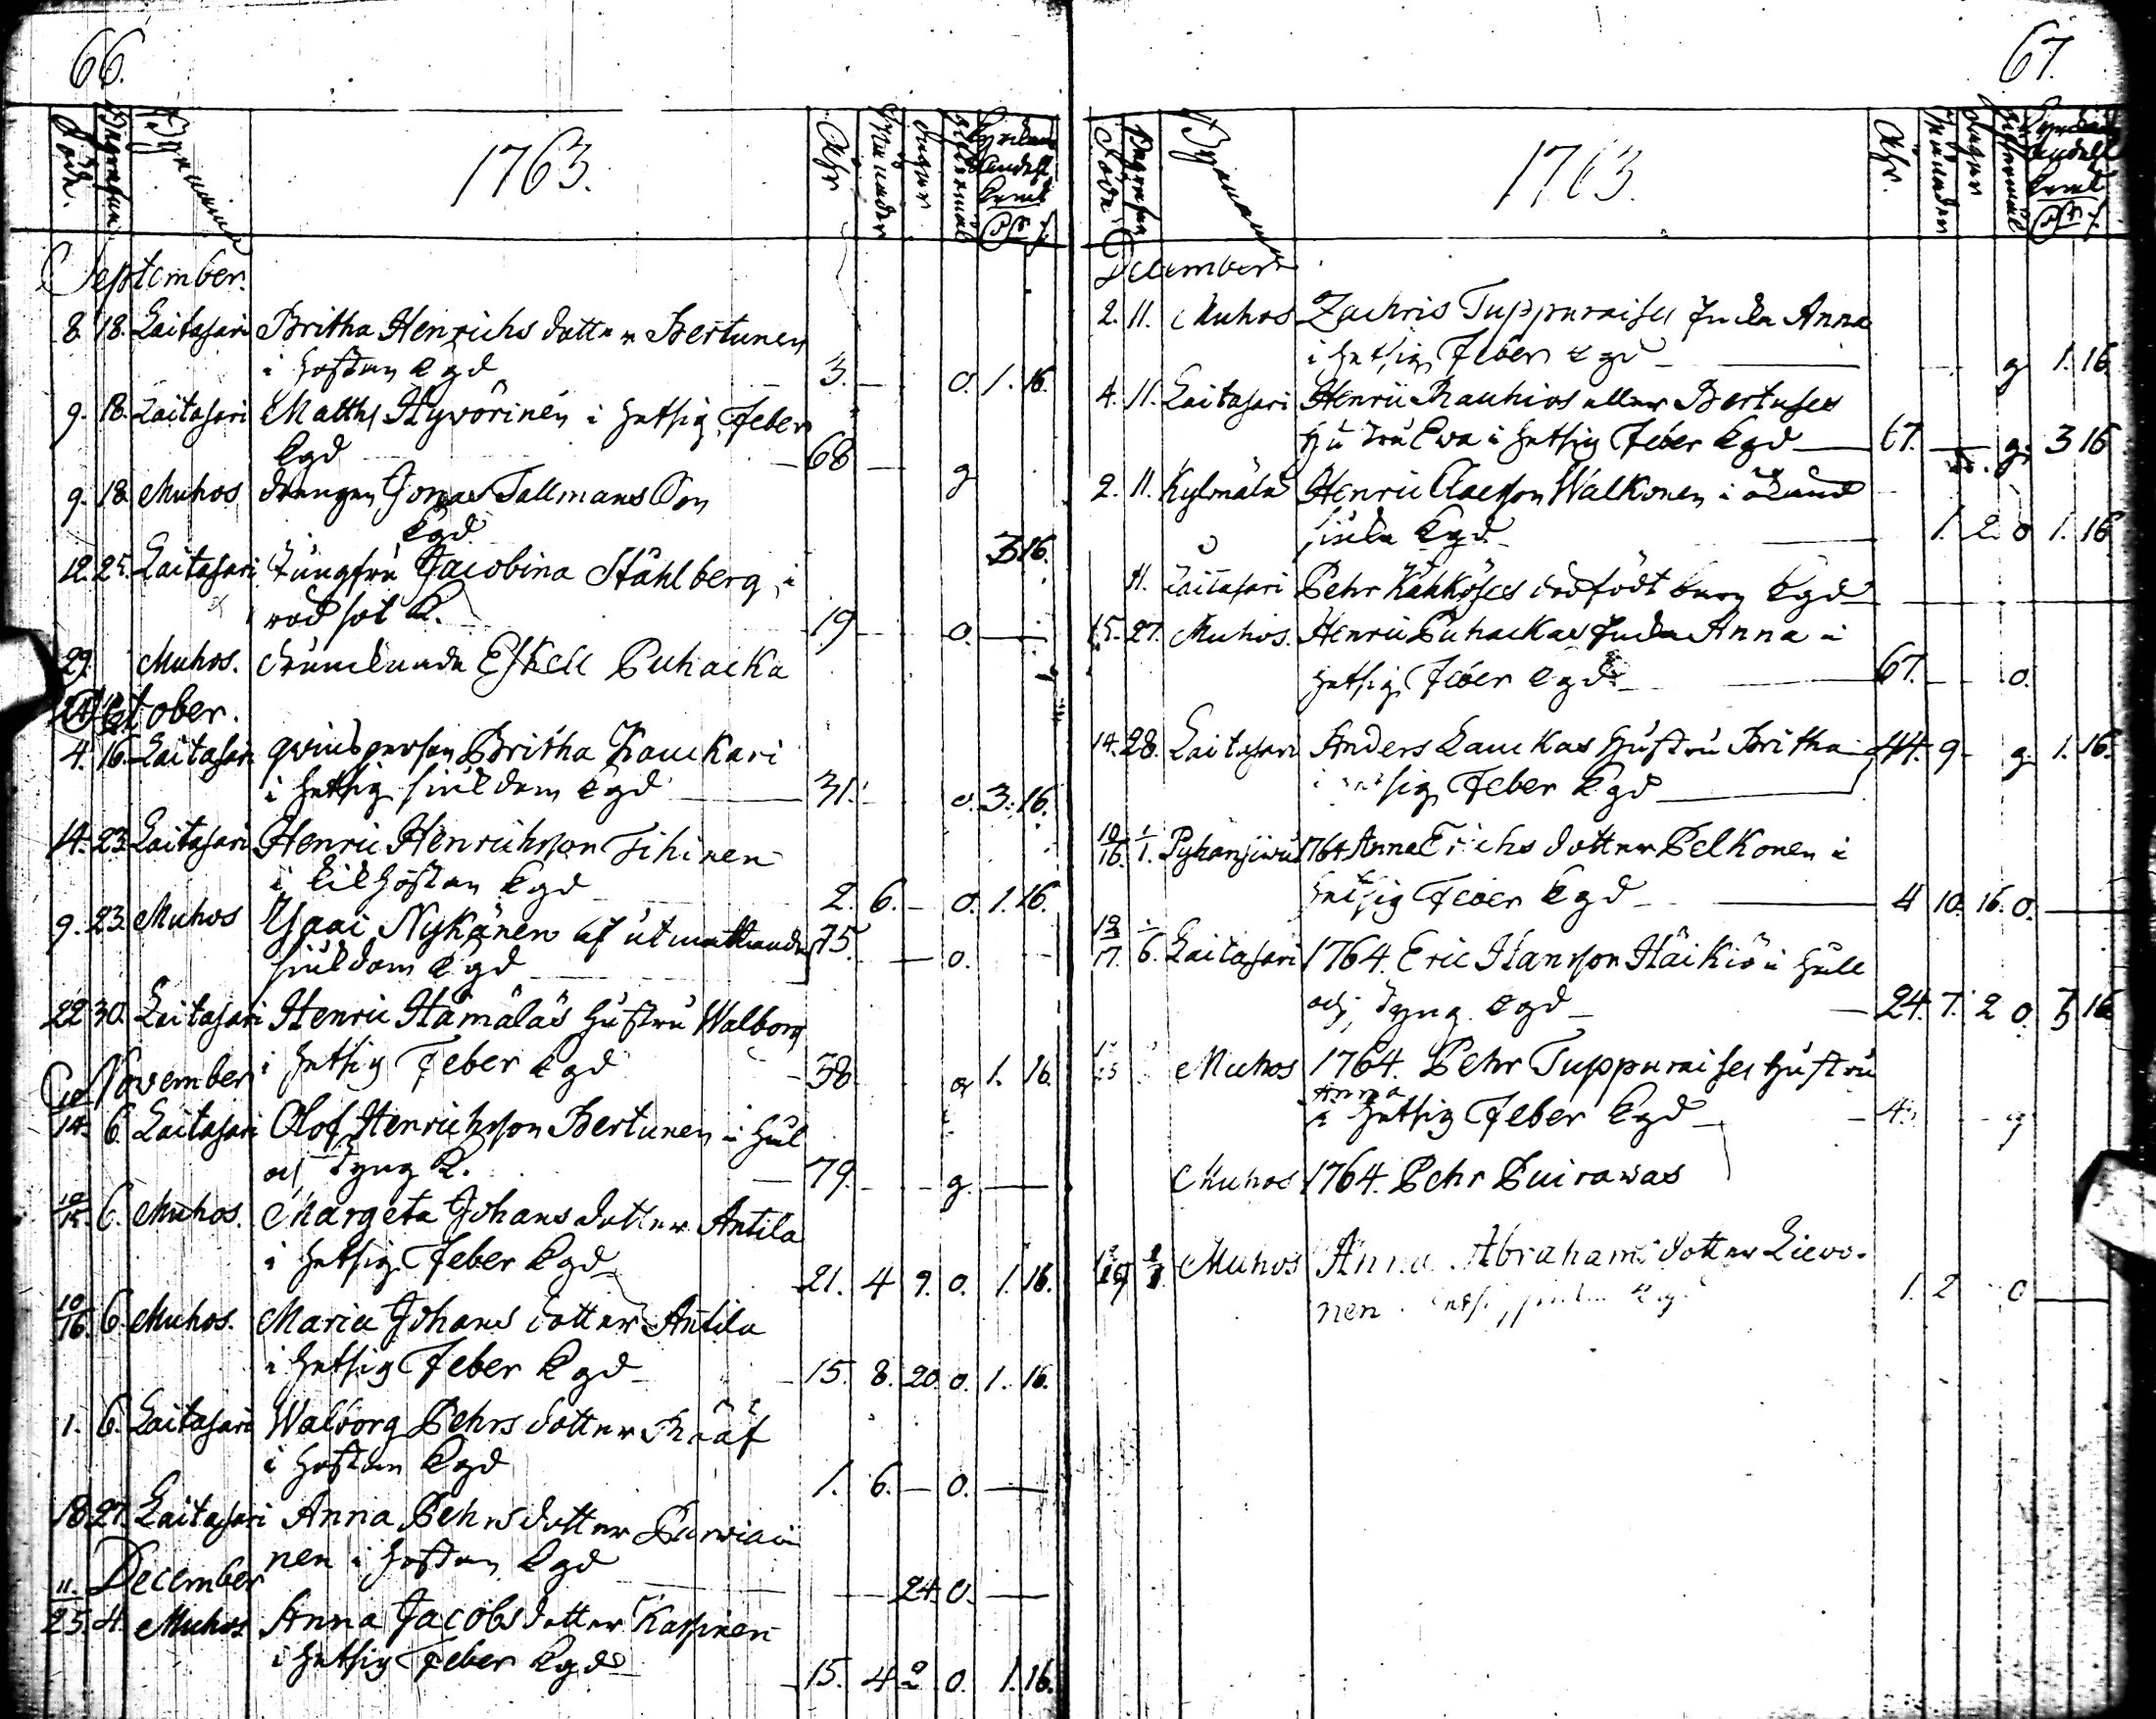 66.
Döde. Begrafne. Byanamn 1763. Åhr Månader Dagar Giftermål Kyrckans Andehl Kmt
September.
8. 18. Laitasari Britha Henrichs dotter Bertunen
i hostan Kgd 3. — o. 1. 16.
9. 18. Laitasari Matths Hyvörinen i hetsig Feber
Kgd 68 — g
9. 18. Muhos drengen Jonas Tallmans Son
Kgd 3 16.
12. 25. Laitasari Jungfru Jacobina Ståhlberg i
rödsot K. 19 o. —
29. Muhos. Eskell Puhacka
October.
4. 16. Laitasari qvinsperson Britha Kauckari
i hetsig siukdom Kgd 31. o. 3. 16.
14. 23. Laitasari Henric Henrichsson Tihinen
i kikhostan Kgd 2. 6. — o. 1. 16.
9. 23. Muhos Isaai Nykänen af utmattande
siukdom Kgd 75. — o.
22 30. Laitasari Henric Hämäläs hustru Walborg
i hetsig Feber Kgd 38 g 1. 16.
November
10/14. 6. Laitasari Olof Henrichsson Bertunen i Hull
och Tyng K. 79. — g. —
10/15. 6. Muhos. Margeta Johans dotter Antila
i hetsig Feber Kgd 21. 4 9. o. 1. 16.
10/16. 6. Muhos. Maria Johans dotter Antila
i hetsig Feber Kgd 15. 8. 20. o. 1. 16.
1. 6. Laitasari Walborg Pehrs dotter Rääf
i hostan Kgd 1. 6. — o. —
18 27. Laitasari Anna Pehrs dotter Parviai
nen i hostan Kgd — 24. o. —
December
11./25. 4. Muhos Anna Jacobs dotter Karpinen
i hetsig Feber Kgd 15. 4 2 o. 1. 16.
67.
Döde Begrafne Byanamn 1763. Åhr. Månader Dagar Giftermål Kyrckans Andehl Kmt
December
2. 11. Muhos Zachris Tuppuraises Encka Anna
i hetsig Feber Kgd — g 1. 16.
4. 11. Laitasari Henric Rauhios eller Bertuses
hustru Ewa i hetsig Feber Kgd — 67. — g. 3 16
2. 11. Kylmälä Henric Claesson Walkonen i okänd
siuka Kgd — 1. 2. o 1. 16
11. Laitasari Pehr Kähköses dödfödt barn Kgd
15. 27. Muhos. Henric Puhackas Encka Anna i
hetsig Feber Kgd — 67. — o.
14. 28. Laitasari Anders Lauckas Hustru Britha 44. 9 — g. 1. 16.
i hetsig Feber Kgd
12/16. 1/1. Pyhänsiwu 1764 Anna Erichs dotter Pelkonen i
hetsig Feber Kgd — 4 10. 16. o. —
12/17. 1/6. Laitasari 1764. Eric Hansson Häikiö i Hull
och Tyng Kgd — 24. 7. 2 o. 3 16
Muhos 1764. Pehr Tuppuraises Hustru
Anna
i hetsig Feber Kgd — g
Muhos 1764. Pehr Puirawas
Muhos Anna Abrahams dotter Liewo-
nen 1. 2 o —